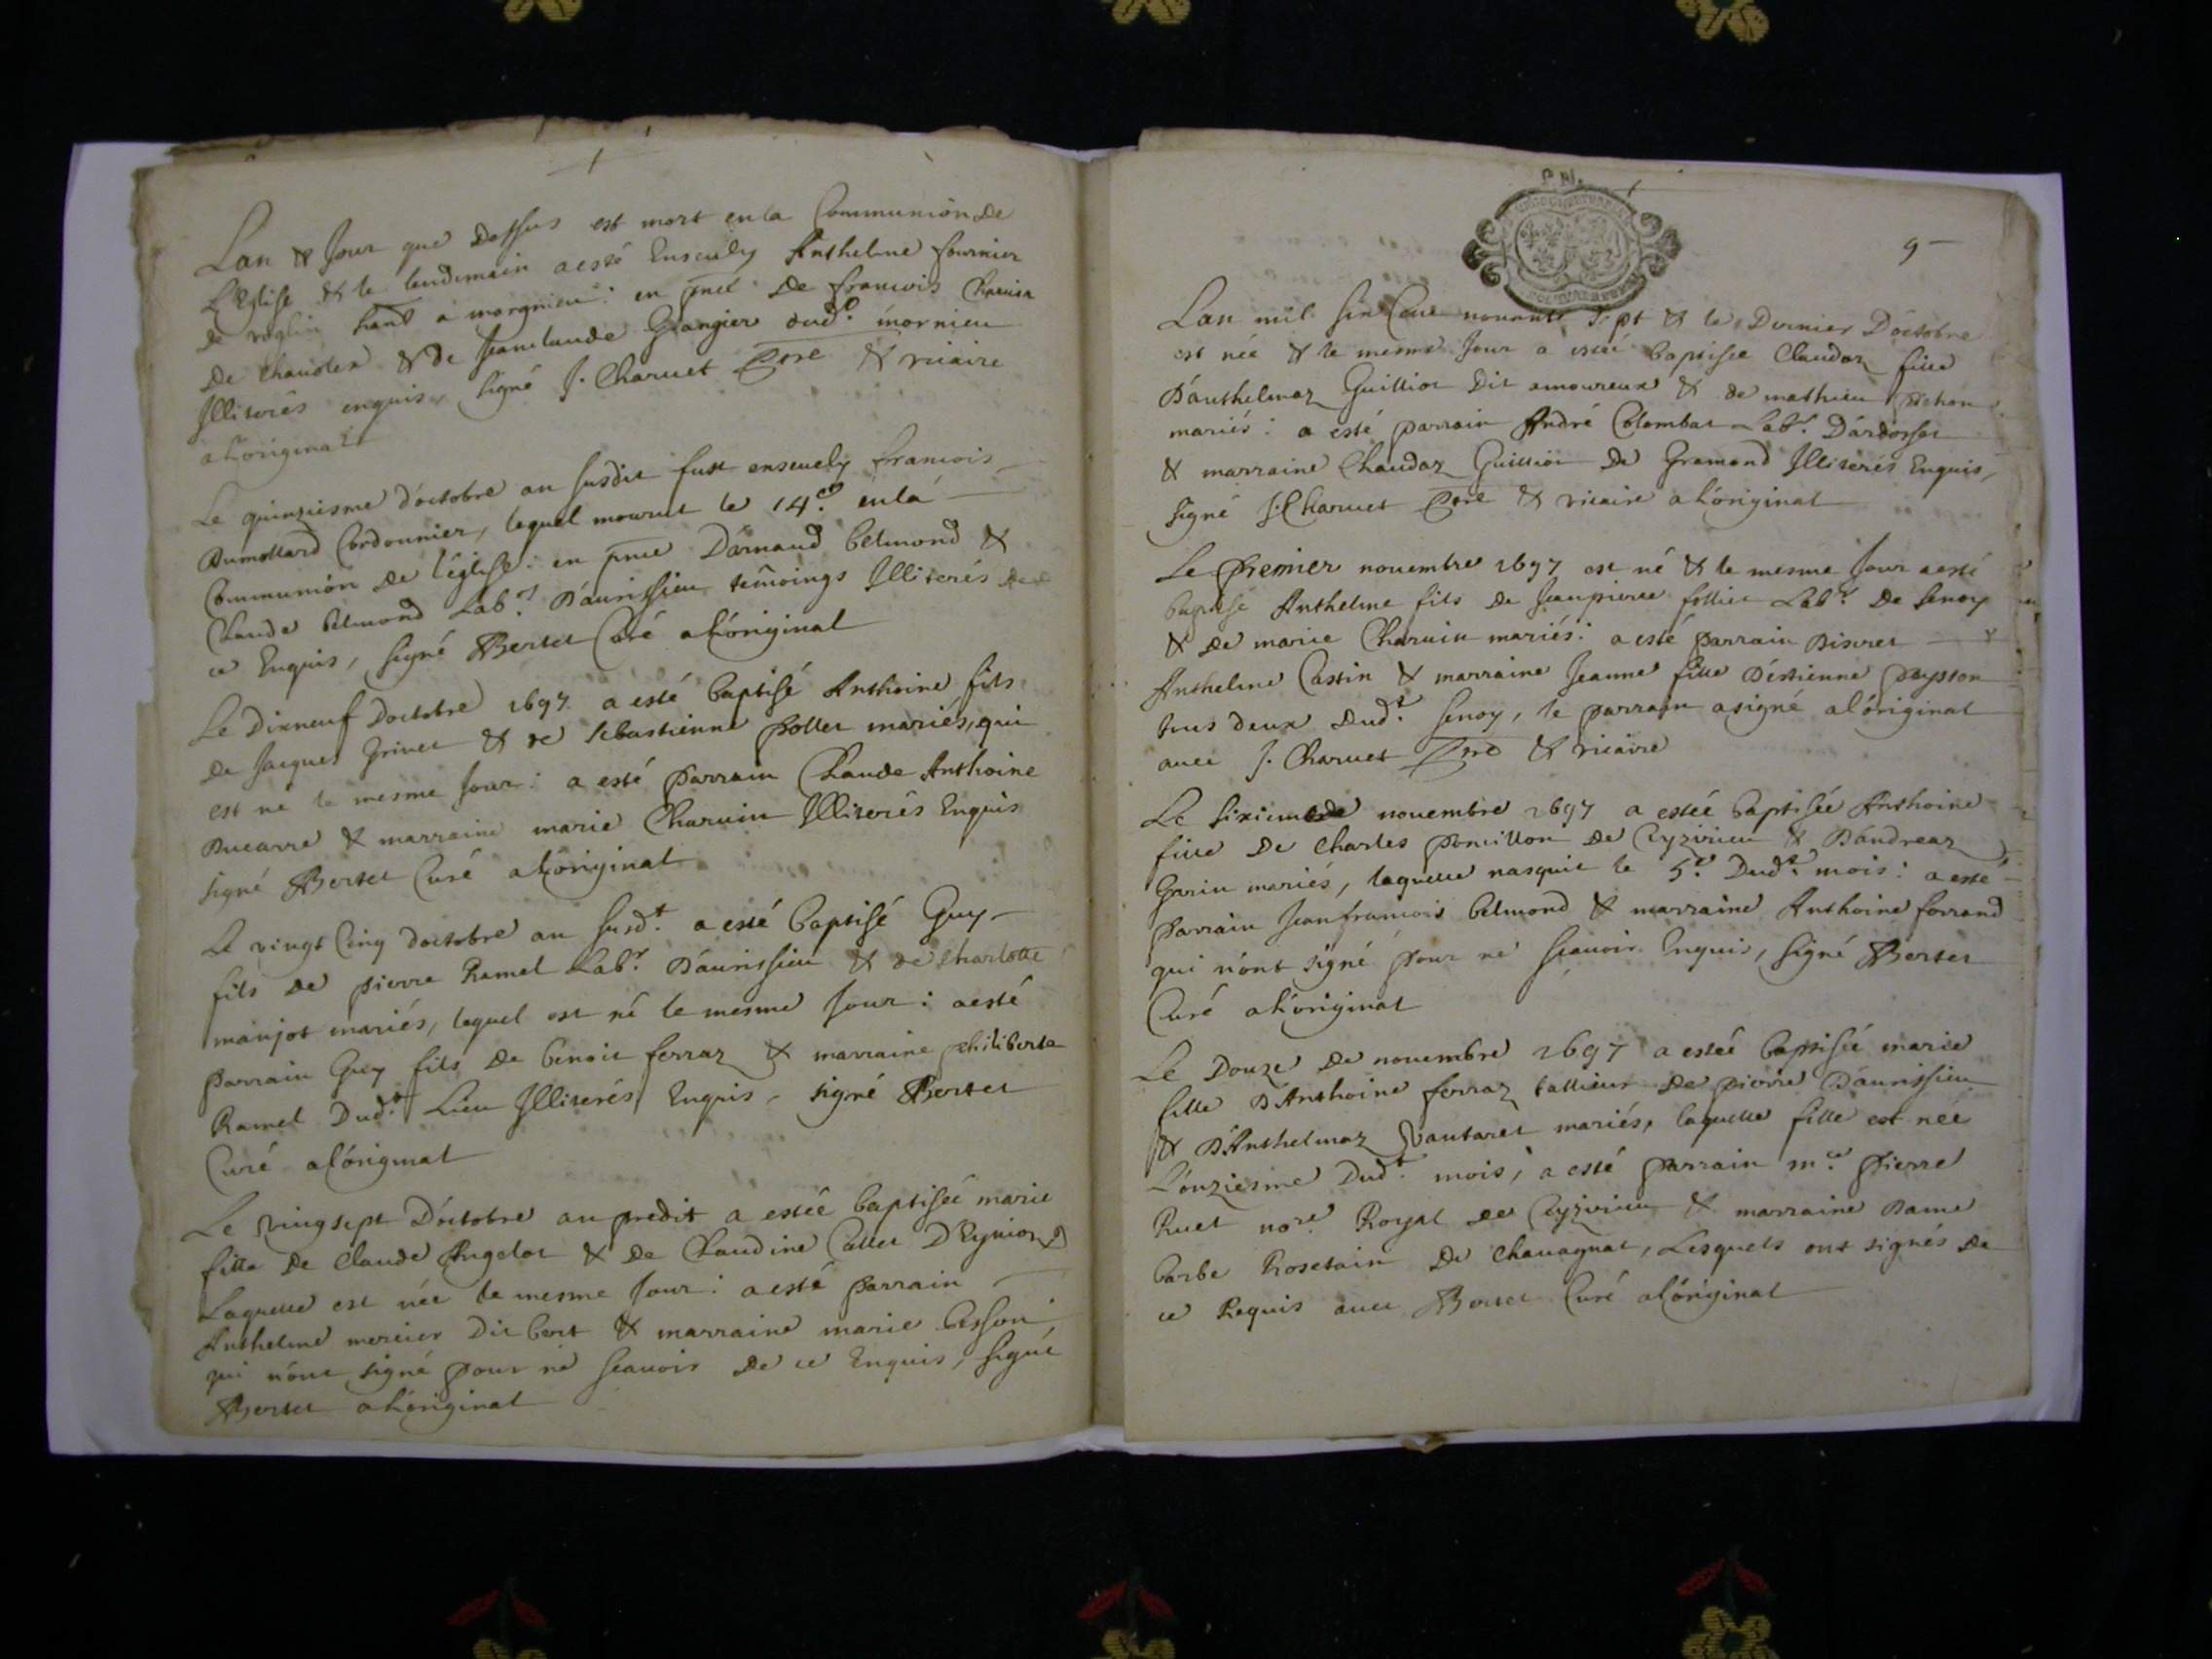 Lan & Jour que dessus est mort en la Communion de
L'Eglise & le lendemain a esté Enseuely Anthelme fournier
de hant a morgnieu : en pnce de francois Charuin
De & de Jeanclaude Grangier dud.t mornieu
Illiterés enquis, signé J. Charuet Ptre & vicaire
a l'original
Le quinziesme d'octobre an susdit fust enseuely francois
Dumollard Cordonnier, lequel mourut le 14.e en la
Communion de l'église : en pnce D'arnaud belmond &
Claude belmond Lab.r D'aurissieu temoings Illiterés de
ce Enquis, signé Bertet Curé a l'original
Le Dixneuf D'octobre 1697 a esté baptisé Anthoine fils
de Jacques Grinet & de sebastienne pollet mariés, qui
est né le mesme Jour : a esté parrain Claude Anthoine
Ducarre & marraine marie Charuin Illiterés Enquis
signé Bertet Curé a l'original
Le vingt Cinq d'octobre an susd.t a esté baptisé Guy
fils de pierre Ramel Lab.r D'aurissieu & de Charlotte
manjot mariés, lequel est né le mesme Jour : a esté
parrain Guy fils de benoit ferraz & marraine philiberte
Ramel Dud.t Lieu Illiterés Enquis, signé Bertet
Curé a l'original
Le vingsept D'octobre an predit a esteé baptiseé marie
fille de Claude Angelot & de Claudine Callet D'Eynion
Laquelle est née le mesme Jour : a esté parrain
Anthelme mercier Dit bert & marraine marie besson
qui n'ont signé pour ne scauoir de ce Enquis, signé
Bertet a l'original
9
Lan mil six Cent nonante sept & le Dernier D'octobre
est née & le mesme Jour a esteé baptiseé Claudaz fille
D'anthelmaz Guilliot Dit amoureux & de mathieu pichon
mariés : a esté parrain André Colombat Lab.r D'ardosset
& marraine Claudaz Guilliot De Gramond Illiterés Enquis,
signé J. Charuet Ptre & vicaire a l'original
Le Premier nouembre 1697 est né & le mesme Jour a esté
baptisé Anthelme fils de Jeanpierre folliet Lab.r De senoy
& de marie Charuin mariés : a esté parrain Discret
Anthelme Castin & marraine Jeanne fille D'estienne peysson
tous deux Dud.t senoy, le parrain a signé a l'original
auec J. Charuet Ptre & vicaire
Le sixiem de nouembre 1697 a esteé baptiseé Anthoine
fille de Charles poncillon de Cyzirieu & D'andreaz
Garin mariés, laquelle nasquit le 5.e Dud.t mois : a esté
parrain Jeanfrancois belmond & marraine Anthoine ferrand
qui n'ont signé pour ne scauoir Enquis, signé Bertet
Curé a l'original
Le Douze de nouembre 1697 a esteé baptiseé marie
fille D'Anthoine ferraz tallieur de pierre D'aurissieu
& D'Anthelmaz Vautaret mariés, laquelle fille est neé
L'onziesme Dud.t mois, a esté parrain m.e pierre
Ruet no.re Royal de Cyzirieu & marraine Dame
barbe Rosetain De Chauagnat, Lesquels ont signés de
ce Requis auec Bertet Curé a l'original